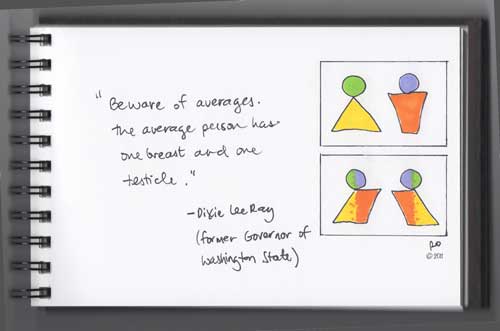 "Beware of averages.
The average person has
one breast and one
testicle."
- Dixie Lee Ray
(former Governor of
Washington State)
© 2011